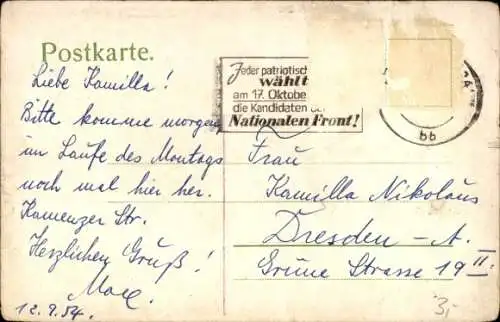 Postkarte.
Jeder patriotisch
wählt
am 17. Oktobe
die Kandidaten der
Nationalen Front!
bb
Liebe Kamilla!
Bitte komme morgen
im Laufe des Montags
noch mal hier her.
Kamenzer Str.
Herzlichen Gruß!
Max.
12.9.54.
Frau
Kamilla Nikolaus
Dresden-A.
Grüne Strasse 19 II.
3,-